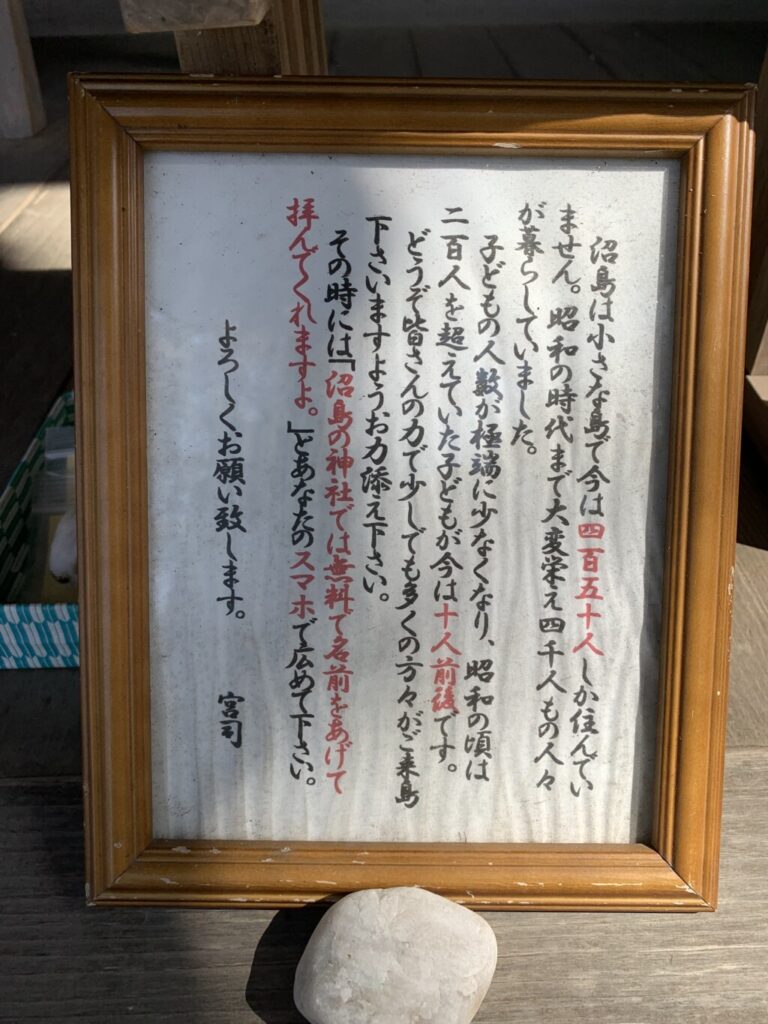 沼島は小さな島で今は四百五十人しか住んでい
ません。昭和の時代まで大変栄え四千人もの人々
が暮らしていました。
子どもの人数が極端に少なくなり、昭和の頃は
二百人を超えていた子どもが今は十人前後です。
どうぞ皆さんの力で少しでも多くの方々がご来島
下さいますようお力添え下さい。
その時には「沼島の神社では無料で名前をあげて
拝んでくれますよ。」とあなたのスマホで広めて下さい。
よろしくお願い致します。 宮司